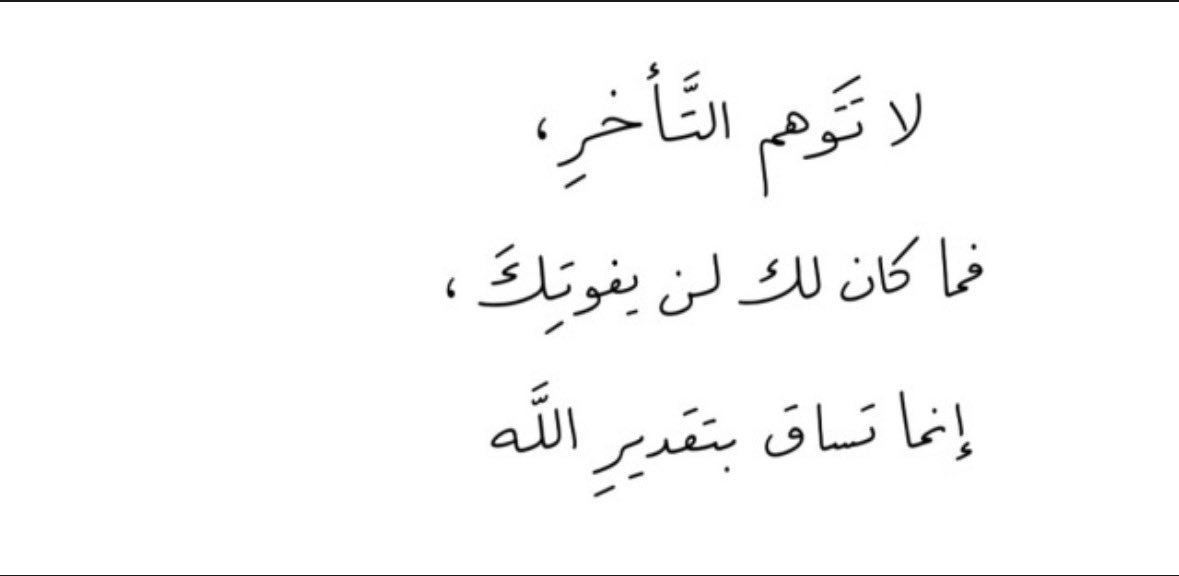 لا تَتَوهم التَّأخرِ،
فما كان لك لن يفوتِكَ،
إنما تساق بتقديرِ اللَّه